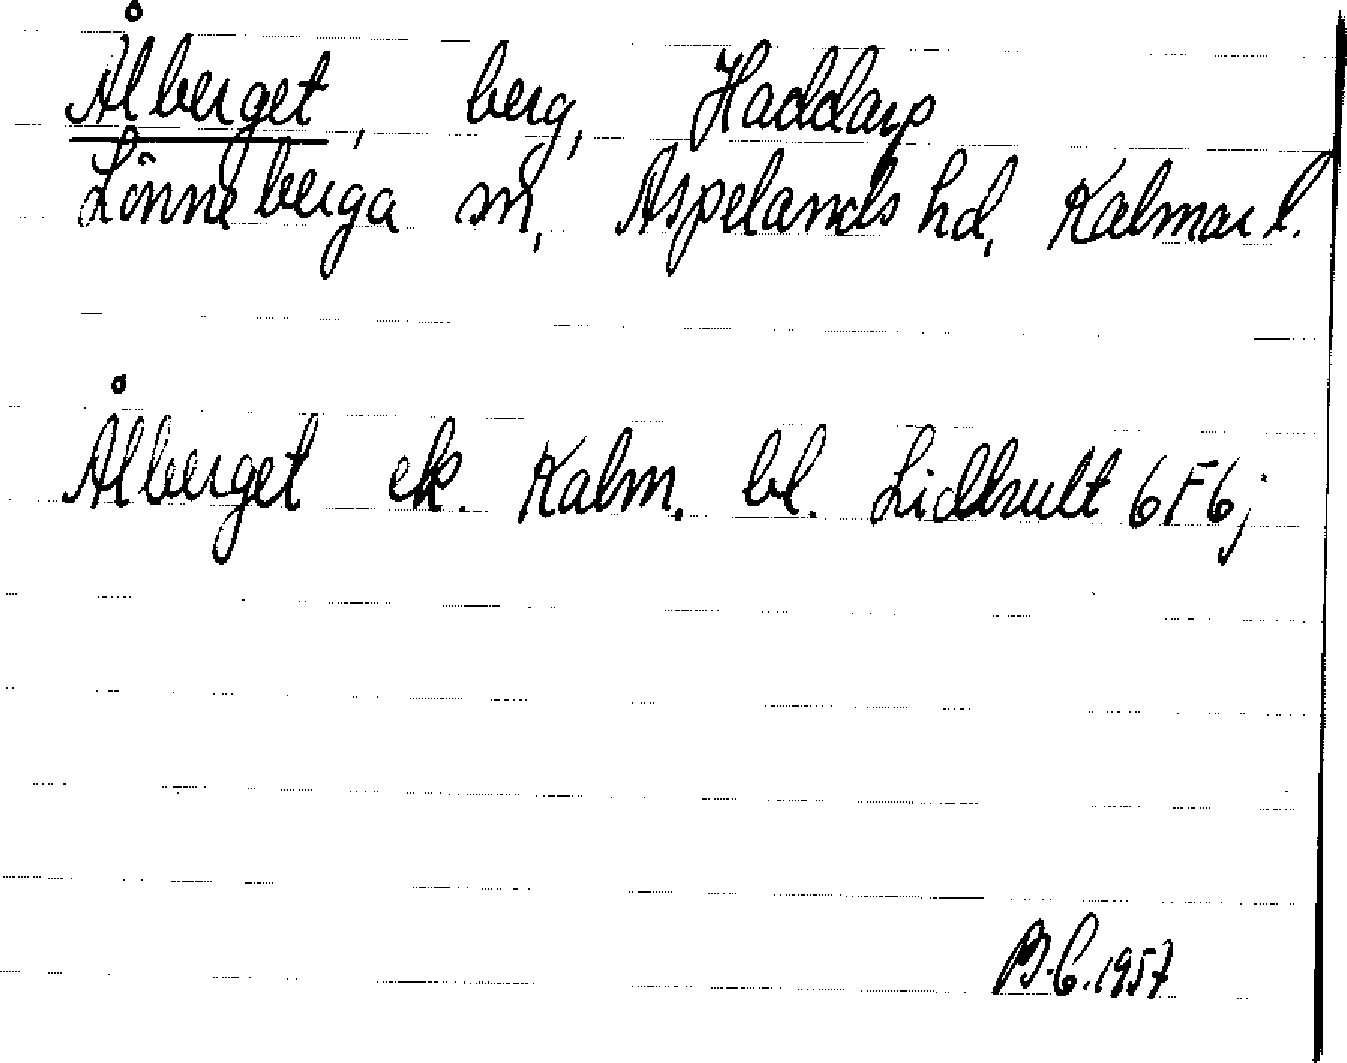 Ålberget, berg, Haddarp
Lönneberga sn, Aspelands hd, Kalmar l.
Ålberget ek. Kalm. bl. Lidhult 6F6j
B-C. 1957